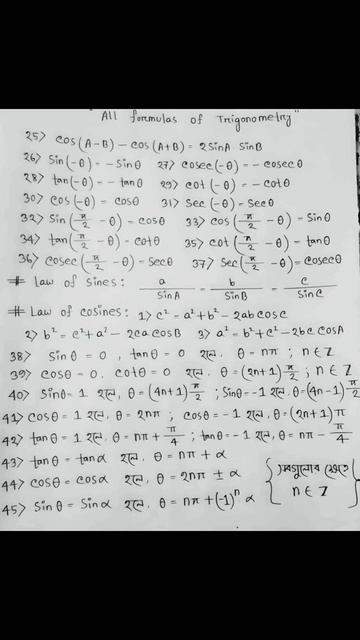 "All formulas of Trigonometry"
25> cos(A-B) - cos(A+B) = 2SinA SinB
26> Sin(-θ) = - Sinθ 27> cosec(-θ) = - cosecθ
28> tan(-θ) = - tanθ 29> cot(-θ) = - cotθ
30> cos(-θ) = cosθ 31> Sec(-θ) = Secθ
32> Sin(π/2 - θ) = cosθ 33> cos(π/2 - θ) = Sinθ
34> tan(π/2 - θ) = cotθ 35> cot(π/2 - θ) = tanθ
36> cosec(π/2 - θ) = Secθ 37> Sec(π/2 - θ) = cosecθ
# Law of sines: a/SinA = b/SinB = c/SinC
# Law of cosines: 1> c² = a² + b² - 2ab cosc
2> b² = c² + a² - 2ca cosB 3> a² = b² + c² - 2bc cosA
38> Sinθ = 0, tanθ = 0 হলে, θ = nπ ; n ∈ Z
39> cosθ = 0, cotθ = 0 হলে, θ = (2n+1) π/2 ; n ∈ Z
40> Sinθ = 1 হলে, θ = (4n+1) π/2 ; Sinθ = -1 হলে, θ = (4n-1) π/2
41> cosθ = 1 হলে, θ = 2nπ ; cosθ = -1 হলে, θ = (2n+1)π
42> tanθ = 1 হলে, θ = nπ + π/4 ; tanθ = -1 হলে, θ = nπ - π/4
43> tanθ = tanα হলে, θ = nπ + α
44> cosθ = cosα হলে, θ = 2nπ ± α
45> Sinθ = Sinα হলে, θ = nπ + (-1)ⁿ α
{ সবগুলোর ক্ষেত্রে
n ∈ Z }